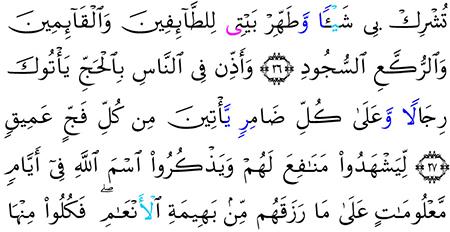 تُشْرِكْ بِى شَيْـًٔا وَّطَهِّرْ بَيْتِىَ لِلطَّآئِفِينَ وَٱلْقَآئِمِينَ
وَٱلرُّكَّعِ ٱلسُّجُودِ ﴿٢٦﴾ وَأَذِّن فِى ٱلنَّاسِ بِٱلْحَجِّ يَأْتُوكَ
رِجَالًا وَّعَلَىٰ كُلِّ ضَامِرٍ يَّأْتِينَ مِن كُلِّ فَجٍّ عَمِيقٍ
﴿٢٧﴾ لِّيَشْهَدُوا۟ مَنَـٰفِعَ لَهُمْ وَيَذْكُرُوا۟ ٱسْمَ ٱللَّهِ فِىٓ أَيَّامٍ
مَّعْلُومَـٰتٍ عَلَىٰ مَا رَزَقَهُم مِّنۢ بَهِيمَةِ ٱلْأَنْعَـٰمِ ۖ فَكُلُوا۟ مِنْهَا